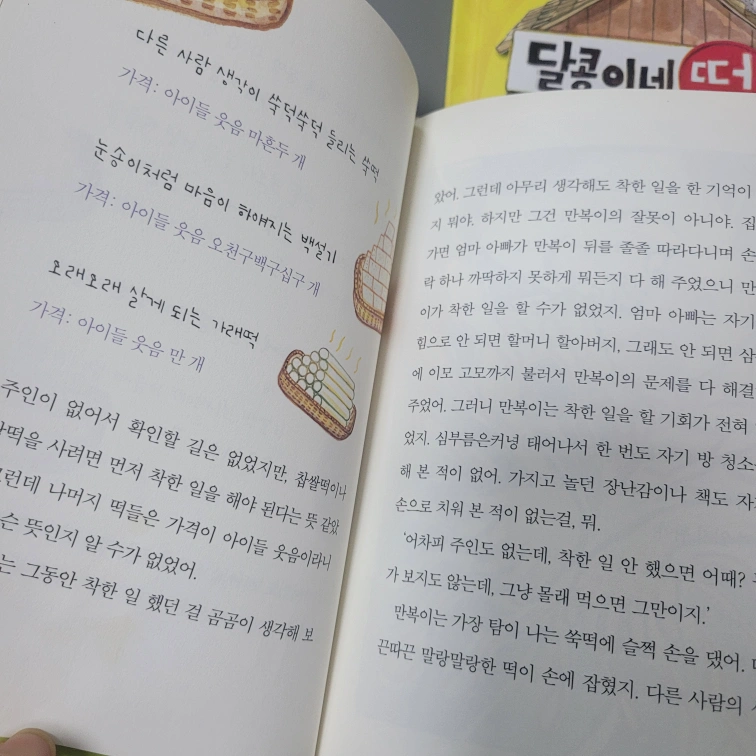 달콩이네 떠
다른 사람 생각이 쑥덕쑥덕 들리는 쑥떡
가격: 아이들 웃음 마흔두 개
눈송이처럼 마음이 하얘지는 백설기
가격: 아이들 웃음 오천구백구십구 개
오래오래 살게 되는 가래떡
가격: 아이들 웃음 만 개
주인이 없어서 확인할 길은 없었지만, 찹쌀떡이나
떡을 사려면 먼저 착한 일을 해야 된다는 뜻 같았
그런데 나머지 떡들은 가격이 아이들 웃음이라니
슨 뜻인지 알 수가 없었어.
는 그동안 착한 일 했던 걸 곰곰이 생각해 보
았어. 그런데 아무리 생각해도 착한 일을 한 기억이
지 뭐야. 하지만 그건 만복이의 잘못이 아니야. 집
가면 엄마 아빠가 만복이 뒤를 졸졸 따라다니며 손
락 하나 까딱하지 못하게 뭐든지 다 해 주었으니 만
이가 착한 일을 할 수가 없었지. 엄마 아빠는 자기
힘으로 안 되면 할머니 할아버지, 그래도 안 되면 삼
에 이모 고모까지 불러서 만복이의 문제를 다 해결
주었어. 그러니 만복이는 착한 일을 할 기회가 전혀
었지. 심부름은커녕 태어나서 한 번도 자기 방 청소
해 본 적이 없어. 가지고 놀던 장난감이나 책도 자
손으로 치워 본 적이 없는걸, 뭐.
'어차피 주인도 없는데, 착한 일 안 했으면 어때?
가 보지도 않는데, 그냥 몰래 먹으면 그만이지.'
만복이는 가장 탐이 나는 쑥떡에 슬쩍 손을 댔어.
끈따끈 말랑말랑한 떡이 손에 잡혔지. 다른 사람의